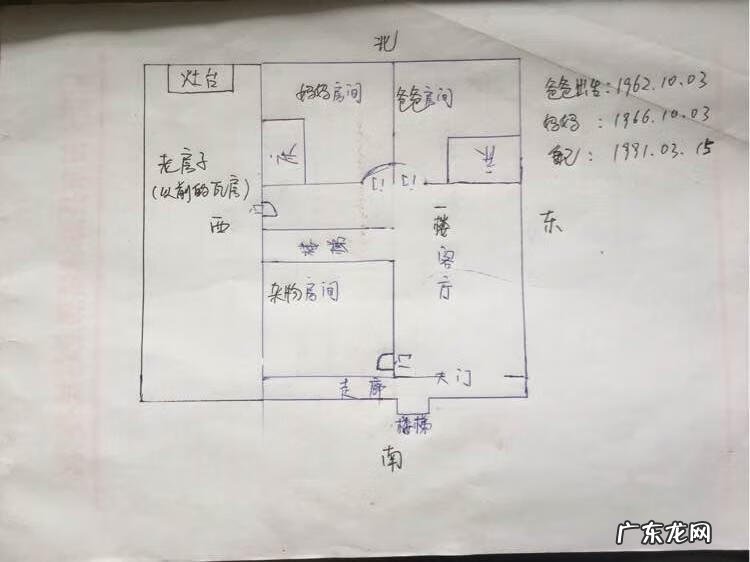 北
灶台
妈妈房间
爸爸房间
爸爸出生:1962.10.03
妈妈 : 1966.10.03
自己 : 1991.03.15
床
床
老房子
(以前的瓦房)
门
门
门
西
一楼客厅
东
楼梯
杂物房间
门
走廊
大门
楼梯
南
广东龙网